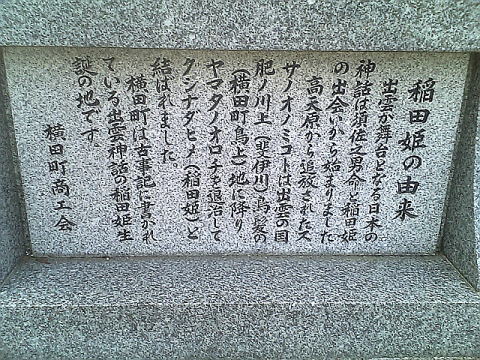 稲田姫の由来
出雲が舞台となる日本の
神話は須佐之男命と稲田姫
の出会いから始まりました
高天原から追放されたス
サノオノミコトは出雲の国
肥ノ川上(斐伊川)鳥髪の
(横田町鳥上)地に降り
ヤマタノオロチを退治して
クシナダヒメ(稲田姫)と
結ばれました。
横田町は古事記に書かれ
ている出雲神話の稲田姫生
誕の地です。
横田町商工会